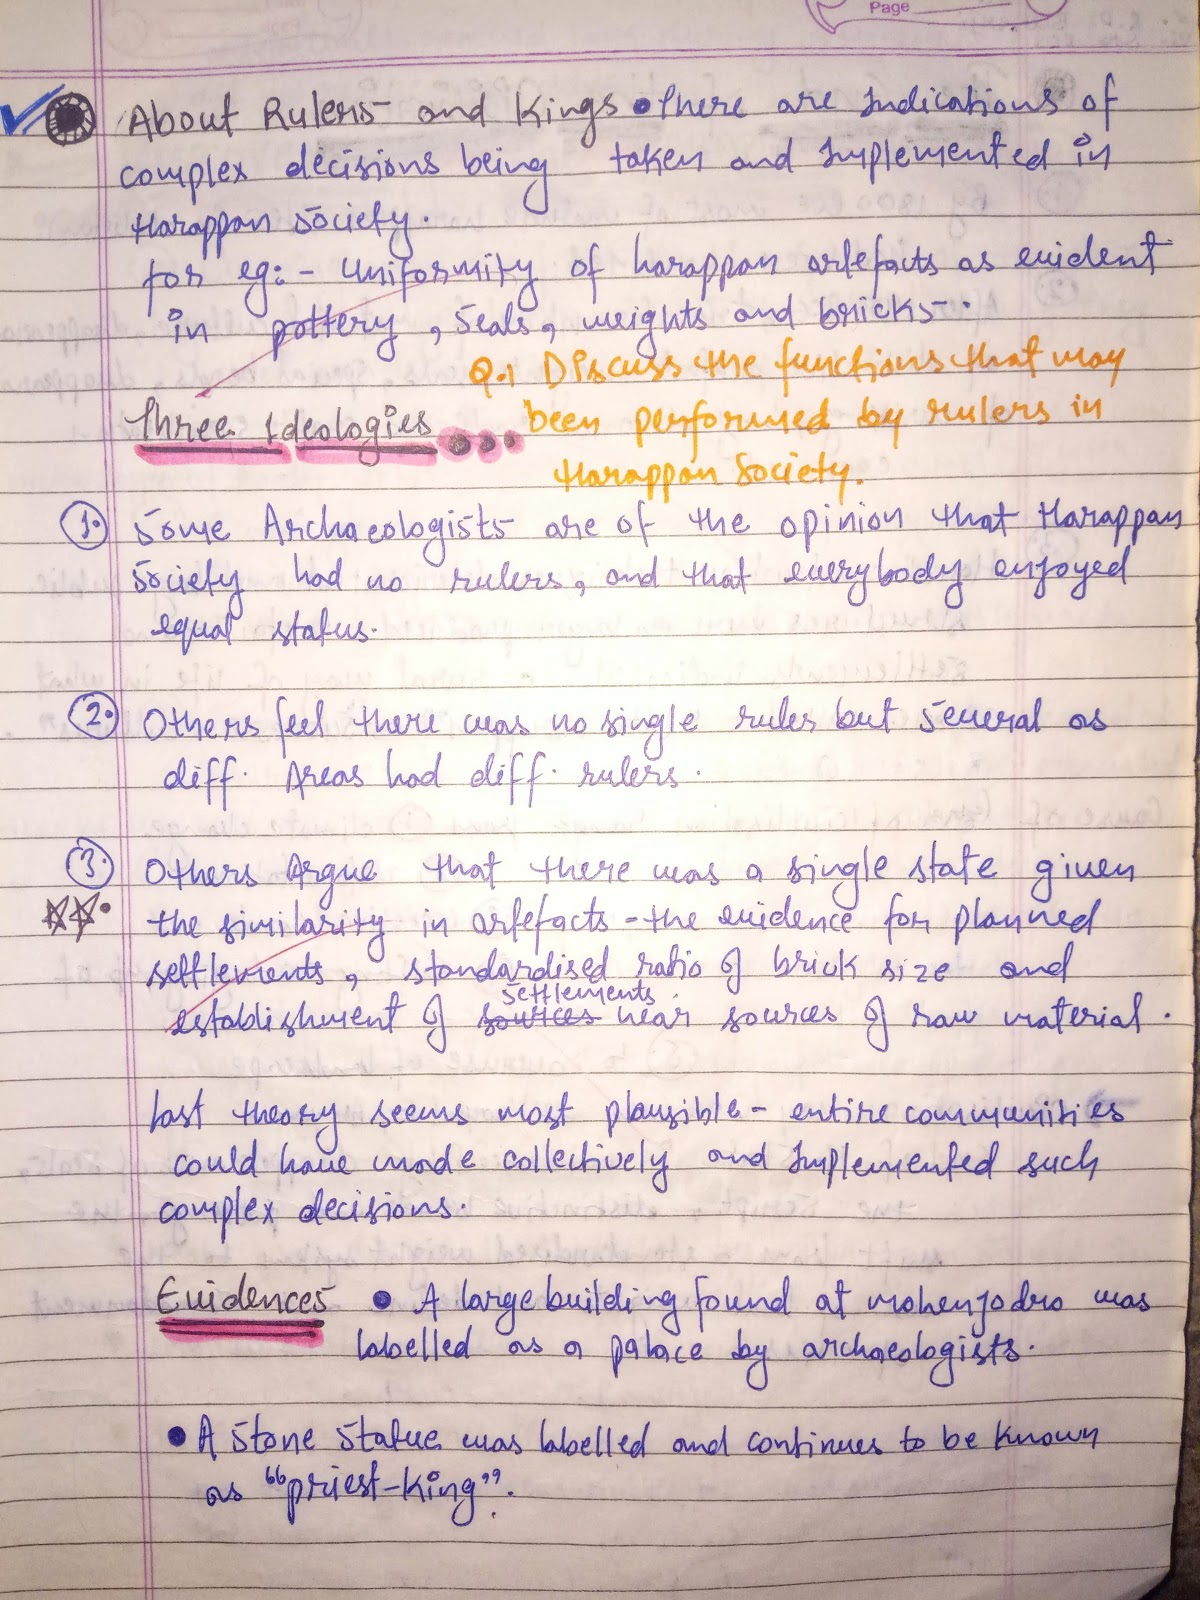 Page
About Rulers and Kings • There are Indications of
complex decisions being taken and Implemented in
Harappan Society.
for eg:- Uniformity of harappan artefacts as evident
in pottery, Seals, weights and bricks.
Q.1 Discuss the functions that may
been performed by rulers in
Harappan Society.
Three Ideologies •••
1. Some Archaeologists are of the opinion that Harappan
Society had no rulers, and that everybody enjoyed
equal status.
2. Others feel there was no single rules but several as
diff. Areas had diff. rulers.
3. Others Argue that there was a single state given
the similarity in artefacts - the evidence for planned
settlements, standardised ratio of brick size and
settlements
establishment of sources near sources of raw material.
Last theory seems most plausible - entire communities
could have made collectively and Implemented such
complex decisions.
Evidences • A large building found at mohenjodro was
labelled as a palace by archaeologists.
• A Stone Statue was labelled and continues to be known
as "priest-King".